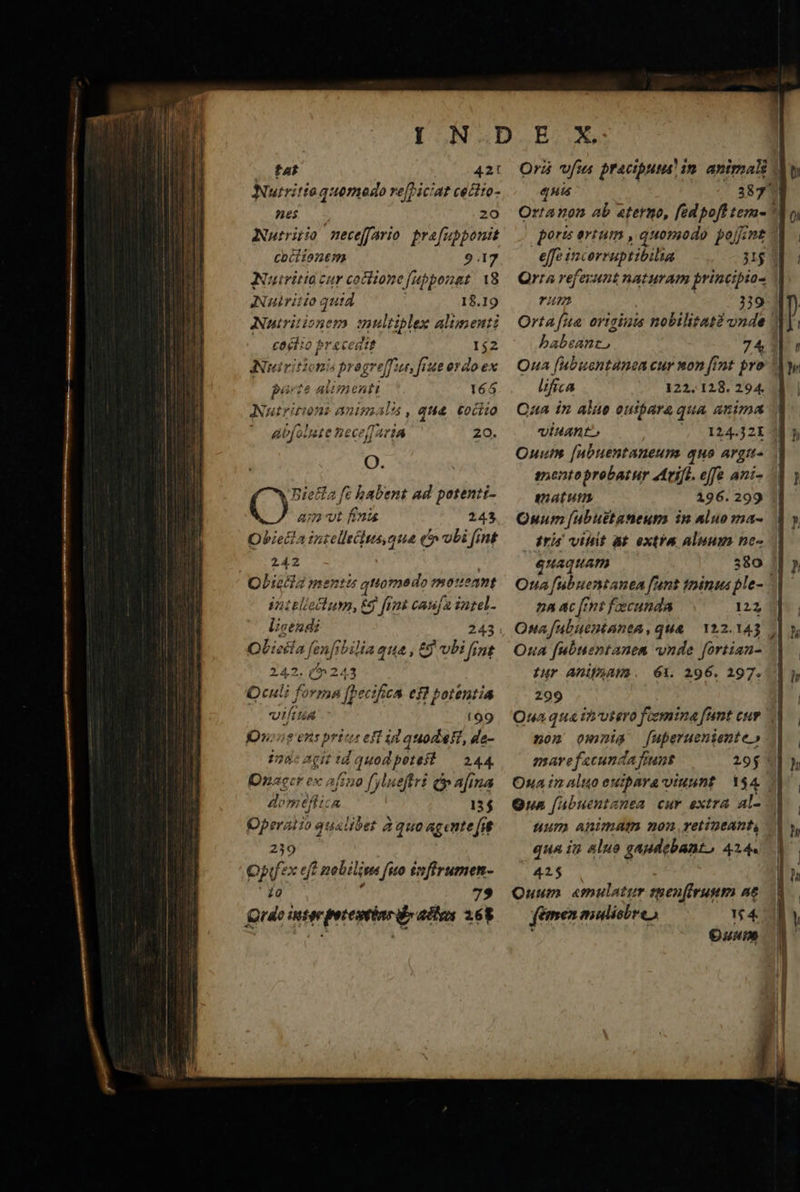 I N D E X.
tat 421
Nutritio quomodo respiciat coctio-
nes 20
Nutritio necessario præsupponit
coctionem 9.17
Nutritio cur coctione supponat 18
Nutritio quid 18.19
Nutritionem multiplex alimenti
coctio præcedit 152
Nutritionis progressus, siue ordo ex
parte alimenti 166
Nutritioni animalis, quæ coctio
absolute necessaria 20.
O.
OBiecta se habent ad potenti-
am vt finis 243
Obiecta intellectus, quæ & vbi sint
242
Obiecta mentis quomodo moueant
intellectum, & sint causa intel-
ligendi 243
Obiecta sensibilia quæ, & vbi sint
242. & 243
Oculi forma specifica est potentia
visiua 199
Omne ens prius est id quod est, de-
inde agit id quod potest 244
Onager ex asino syluestri & asina
domestica 135
Operatio qualibet à quo agente sit
239
Opifex est nobilius suo instrumen-
to 79
Ordo inter potentias & actus 268
Oris vsus præcipuus in animali
quis 387
Orta non ab æterno, sed post tem-
poris ortum, quomodo possint
esse incorruptibilia 315
Orta referunt naturam principio-
rum 339
Orta sua originis nobilitatē vnde
habeant 74
Oua subuentanea cur non sint pro
lifica 122. 128. 294
Oua in aluo ouipara qua anima
viuant 124.321
Ouum subuentaneum quo argu-
mento probatur Arist. esse ani-
matum 296.299
Ouum subuētaneum in aluo ma-
tris viuit at extra aluum ne-
quaquam 380
Oua subuentanea sunt minus ple-
na ac sint fœcunda 122
Oua subuentanea, quæ 122.143
Oua subuentanea vnde sortian-
tur animam. 61. 296. 297.
299
Oua qua in vtero fœmina sunt cur
non omnia superueniente
mare fœcunda fiunt 295
Oua in aluo ouipara viuunt 154
Oua subuentanea cur extra al-
uum animam non retineant,
qua in aluo gaudebant 424.
425
Ouum æmulatur menstruum ac
semen muliebre 154
Ouum